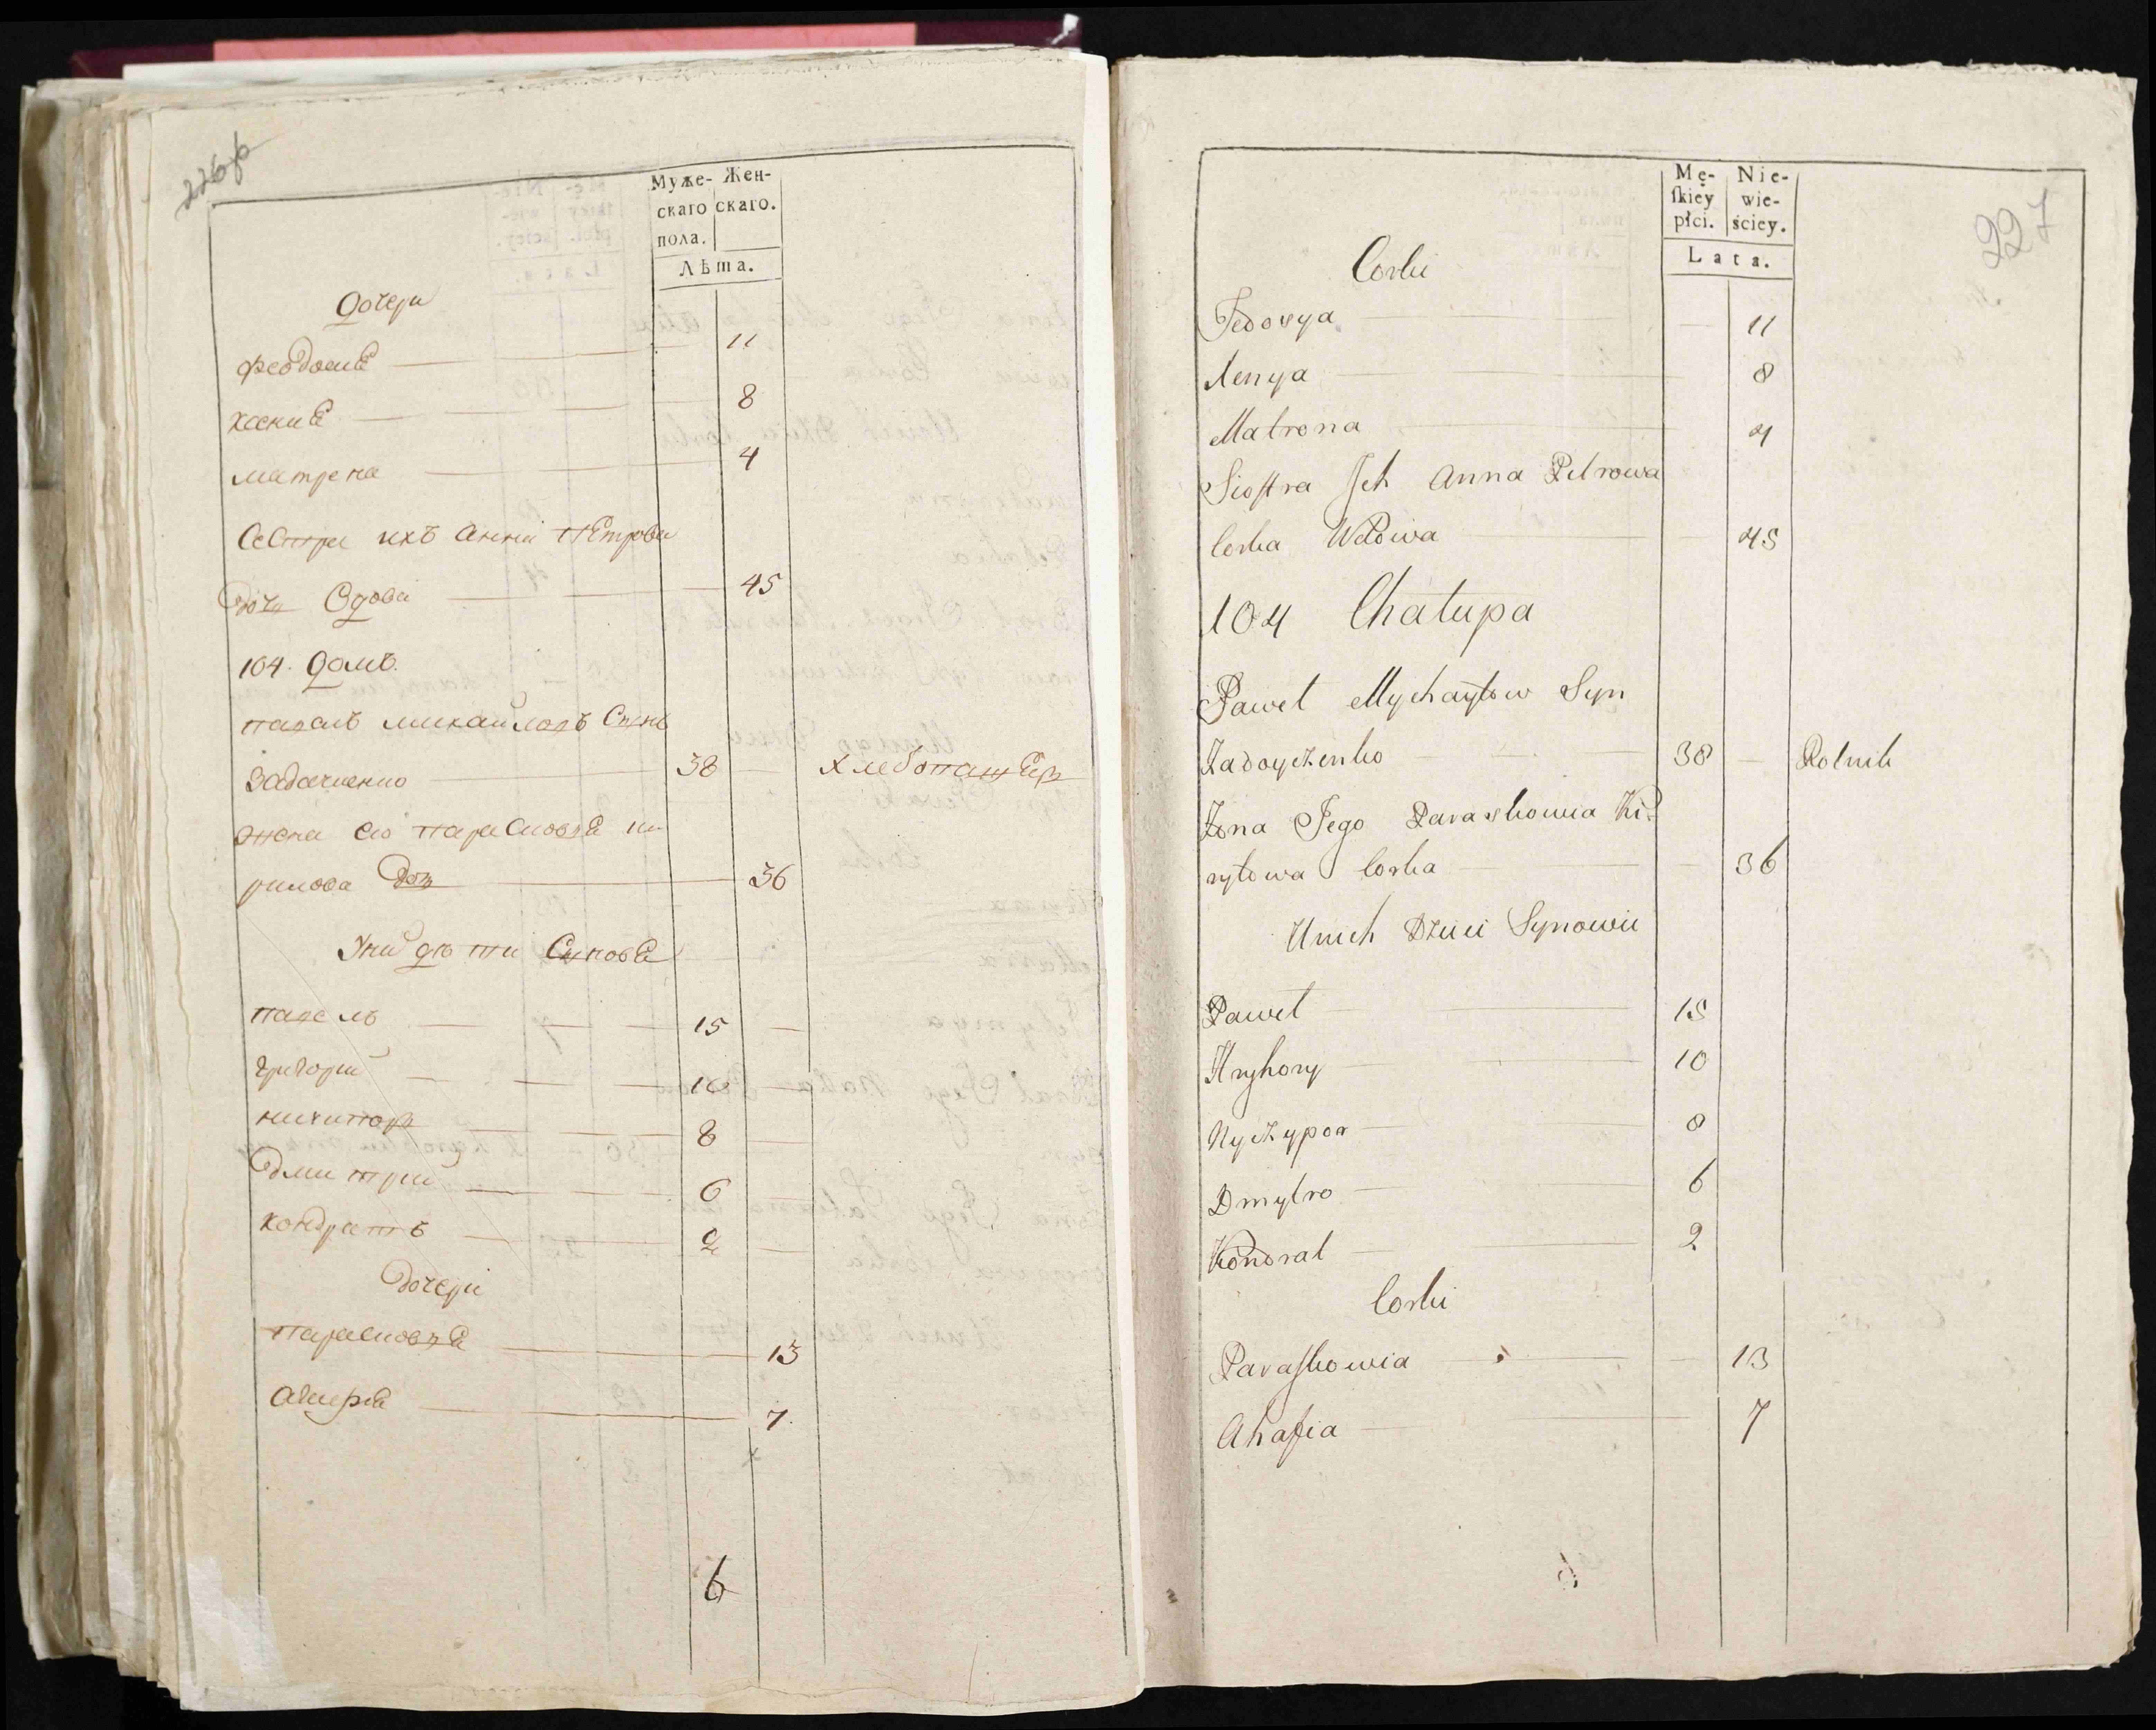 226об
Муже- Жен-
скаго скаго.
пола.
Лѣта.
Дочери
Феодосиѣ 11
Ксениѣ 8
Матрена 4
Сестра ихъ Анна Петрова
дочь вдова 45
104. Домъ.
Павелъ Михайловъ Сынъ
Задоченко 38 хлебопашецъ
Жена его Парасковѣя Ки
рилова дочь 36
У них дѣти Сыновья
Павелъ 15
Григорий 10
Ничипоръ 8
Дмитрий 6
Кондратъ 2
Дочери
Парасковѣя 13
Агафия 7.
6
227
Mę- Nie-
ſkiey wie-
płci. ściey.
Lata.
Corki
Fedosya 11
Xenya 8
Matrona 4
Sioſtra Jch Anna Petrowa
Corka Wdowa 45
104 Chałupa
Paweł Mychayłow Syn
Zadoyczenko 38 Rolnik
Żona Jego Paraskowia Ki-
ryłowa Corka 36
Unich Dzieci Synowie
Paweł 15
Hryhory 10
Nyczypor 8
Dmytro 6
Kondrat 2
Corki
Paraſkowia 13
Ahafia 7